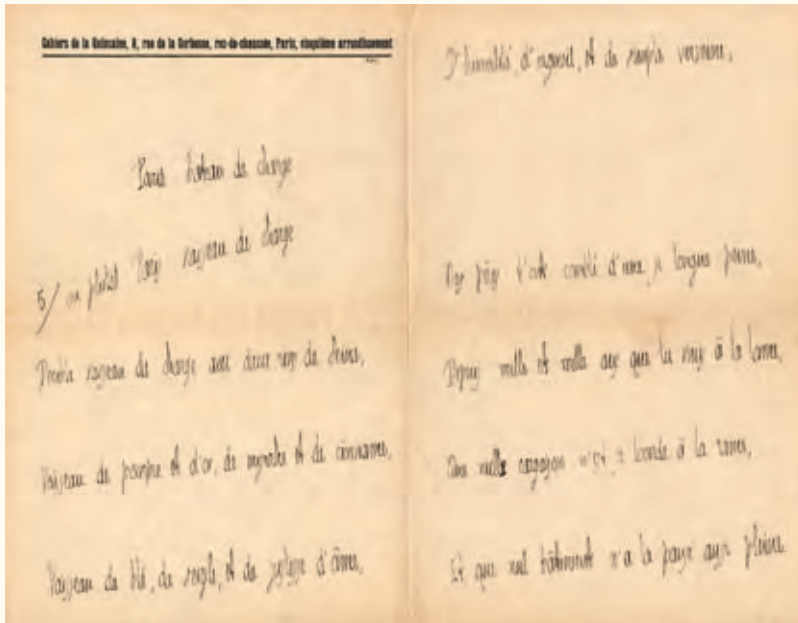 Cahiers de la Quinzaine, 8, rue de la Sorbonne, rez-de-chaussée, Paris, cinquième arrondissement
Paris bateau de charge
5/ ou plutôt Paris vaisseau de charge
Double vaisseau de charge aux deux rives de Seine,
Vaisseau de pourpre et d'or, de et de
Vaisseau de blé, de seigle, et de justesse d'âme,
D'humilité, d'orgueil, et de simple verveine,
Nos pères t'ont comblé d'une si longue peine,
Depuis mille et mille ans que tu viens à la lame,
Que nulle cargaison n'est si lourde à la rame,
Et que nul bâtiment n'a la panse aussi pleine.